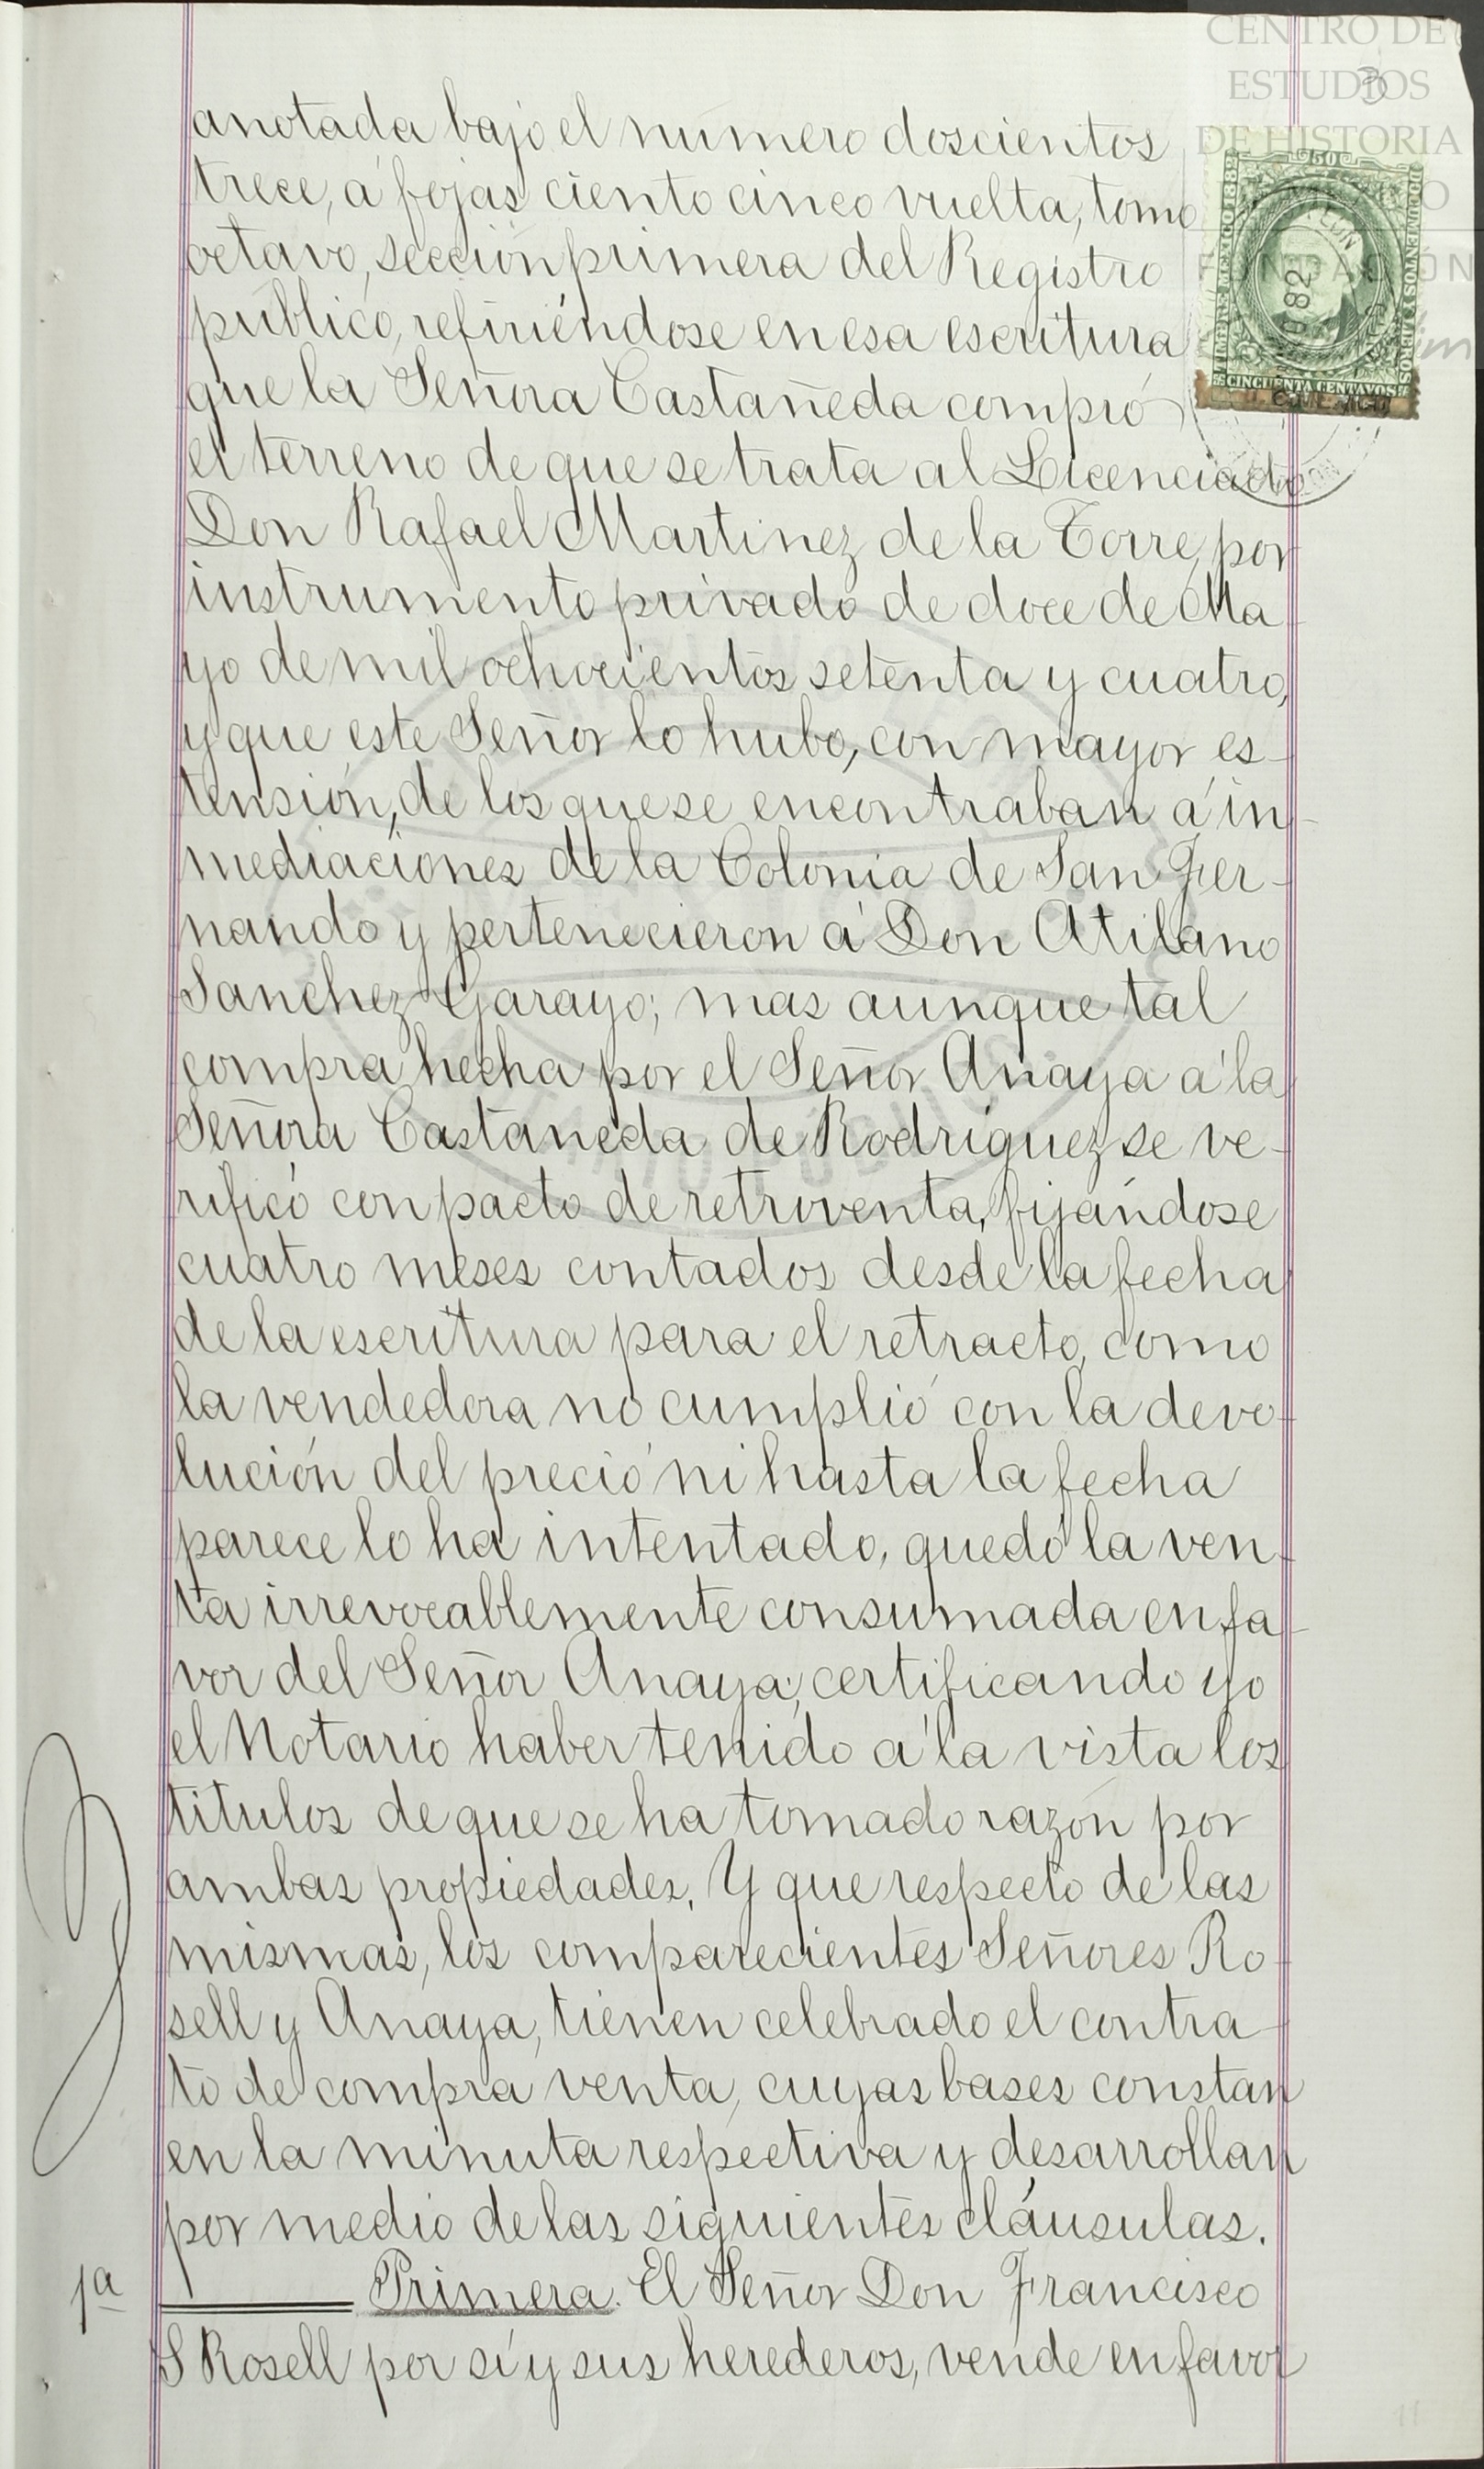 CENTRO DE
ESTUDIOS
DE HISTORIA
3
anotada bajo el número doscientos
trece, á fojas ciento cinco vuelta, tomo
octavo, sección primera del Registro
público, refiriéndose en esa escritura
que la Señora Castañeda compró
el terreno de que se trata al Licenciado
Don Rafael Martinez de la Torre, por
instrumento privado de doce de Ma
yo de mil ochocientos setenta y cuatro,
y que este Señor lo hubo, con mayor es-
tensión, de los que se encontraban á in-
mediaciones de la Colonia de San Fer-
nando y pertenecieron á Don Atilano
Sanchez Garayo; mas aunque tal
compra hecha por el Señor Anaya á la
Señora Castañeda de Rodriguez se ve-
rificó con pacto de retroventa, fijándose
cuatro meses contados desde la fecha
de la escritura para el retracto, como
la vendedora no cumplió con la devo-
lución del precio ni hasta la fecha
parece lo ha intentado, quedó la ven-
ta irrevocablemente consumada en fa-
vor del Señor Anaya; certificando yo
el Notario haber tenido á la vista los
titulos de que se ha tomado razón por
ambas propiedades. Y que respecto de las
mismas, los comparecientes Señores Ro-
sell y Anaya, tienen celebrado el contra-
to de compra venta, cuyas bases constan
en la minuta respectiva y desarrollan
por medio de las siguientes cláusulas.
1a Primera. El Señor Don Francisco
S Rosell por sí y sus herederos, vende en favor
50
DOCUMENTOS Y LIBROS
CINCUENTA CENTAVOS
82